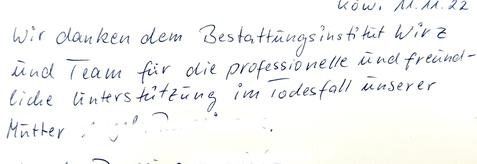 Köw. 11.11.22
Wir danken dem Bestattungsinstitut Wirz
und Team für die professionelle und freund-
liche Unterstützung im Todesfall unserer
Mutter